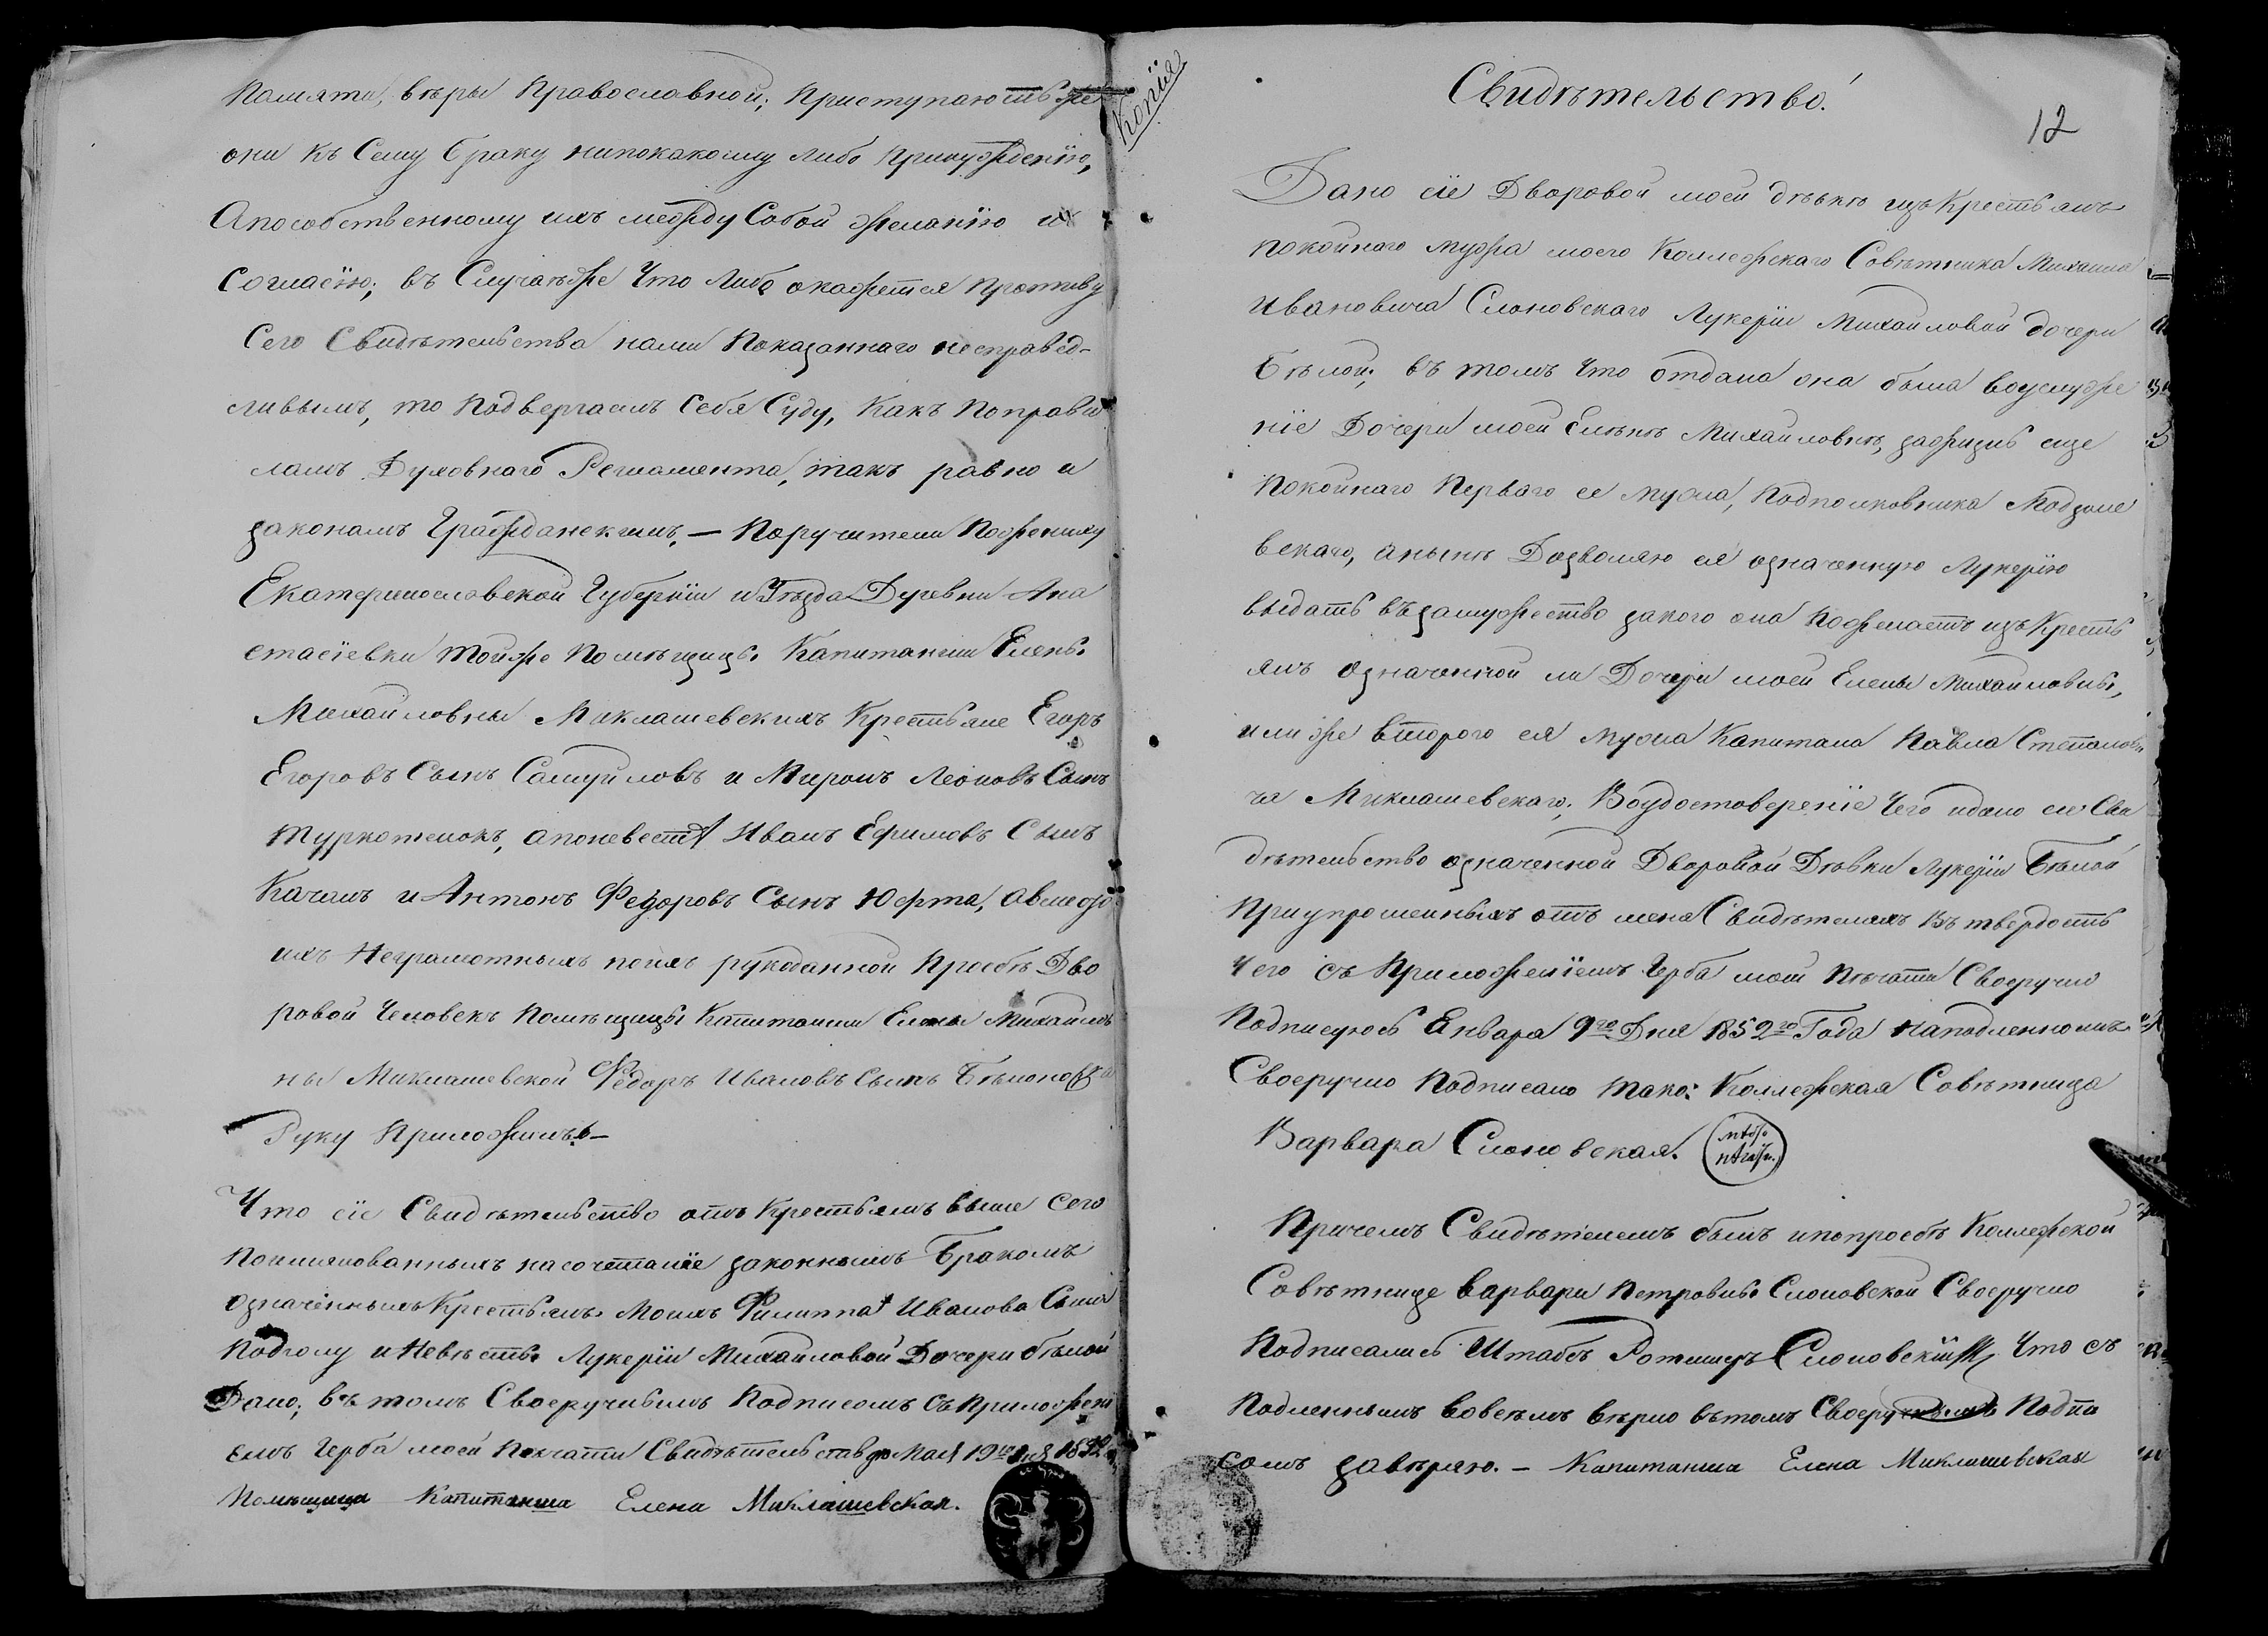 памяти, веры Православной; Приступаютъ же
они къ Сему браку нипокакому либо Принужденїю,
Апособственному ихъ между Собой желанїю и
Согласїю; въ Случаѣже Что Либо окажется Противу
Сего Свидѣтельства нами Показаннаго несправед-
ливымъ, то Подвергаемъ Себя Суду, Какъ Поправи
ламъ Духовнаго Регламента, такъ равно и
законамъ Гражданскимъ. — Поручители Поженику
Екатеринославской Губернїи и Уѣзда Деревни Ана
стасїевки Тойже Помѣщицы Капитанши Елены
Михайловны Миклашевскихъ Крестьяне Егоръ
Егоровъ Сынъ Самуйловъ и Миронъ Леоновъ Сынъ
Туркотенокъ, апоневестѣ Иванъ Ефимовъ Сынъ
Качанъ и Антонъ Федоровъ Сынъ Юфта, авмѣсто
ихъ Неграмотныхъ поихъ рукоданной Прозбѣ Дво
ровой Человекъ Помѣщицы Капитанши Елены Михайлов
ны Миклашевской Федоръ Ивановъ Сынъ
Руку Приложилъ. —
Что сїе Свидѣтельство отъ Крестьянъ выше сего
Поименованныхъ насочетанїе законнымъ Бракомъ
Означенныхъ Крестьянъ Моихъ Филиппа Иванова Сына
и Невѣсты Лукерїи Михайловой Дочери бѣлой
Дано; въ томъ Своеручнымъ Подписомъ Съ Приложенї
емъ Герба моей Печати Свидѣтельствую Мая 19го дня 1852
Помѣщица Капитанша Елена Миклашевская.
Копїя
Свидѣтельство.
12
Дано сїе Дворовой моей дѣвкѣ изъ Крестьянъ
покойнаго мужа моего Коллежскаго Совѣтника Михаила
Ивановича Слоновскаго Лукерїи Михайловой дочери
Бѣлой; въ томъ Что отдана она была воуслуже
нїе Дочери моей Еленѣ Михайловнѣ, зажизнь еще
Покойнаго Перваго ее мужа, Подполковника Модзале
вскаго, анынѣ Дозволяю ей означенную Лукерїю
выдать въ замужество закого она Пожелаетъ изъ Кресть
янъ означенной ли Дочери моей Елены Михайловны,
илиже втораго ея мужа Капитана Павла Степанови
ча Миклашевскаго; Воудостоверенїе Чего идано сїе Сви
дѣтельство означенной Дворовой Дѣвки Лукерїи Бѣлой
Приупрошенныхъ отъ меня Свидѣтеляхъ въ твердость
Чего съ Приложенїемъ Герба моей Печати Своеручно
Подписуюсь Января 9го Дня 1852го Года наподленномъ
Своеручно Подписано тако: Коллежская Совѣтница
Варвара Слоновская. мѣсто печати.
Причемъ Свидѣтелемъ былъ ипопрозбѣ Коллежской
Совѣтнице Варвары Петровны Слоновской Своеручно
Подписались Штабъ Ротмистръ Слоновскїй Что съ
Подленнымъ вовсемъ вѣрно вътомъ Своеручнымъ Подпи
сомъ завѣряю. — Капитанша Елена Миклашевская